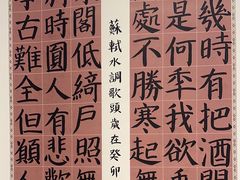 幾時有把酒問
是何秊我欲
處不勝寒起舞
蘇軾水調歌頭歲在癸卯
閣低綺戶照無
時圓人有悲歡
古難全但願人